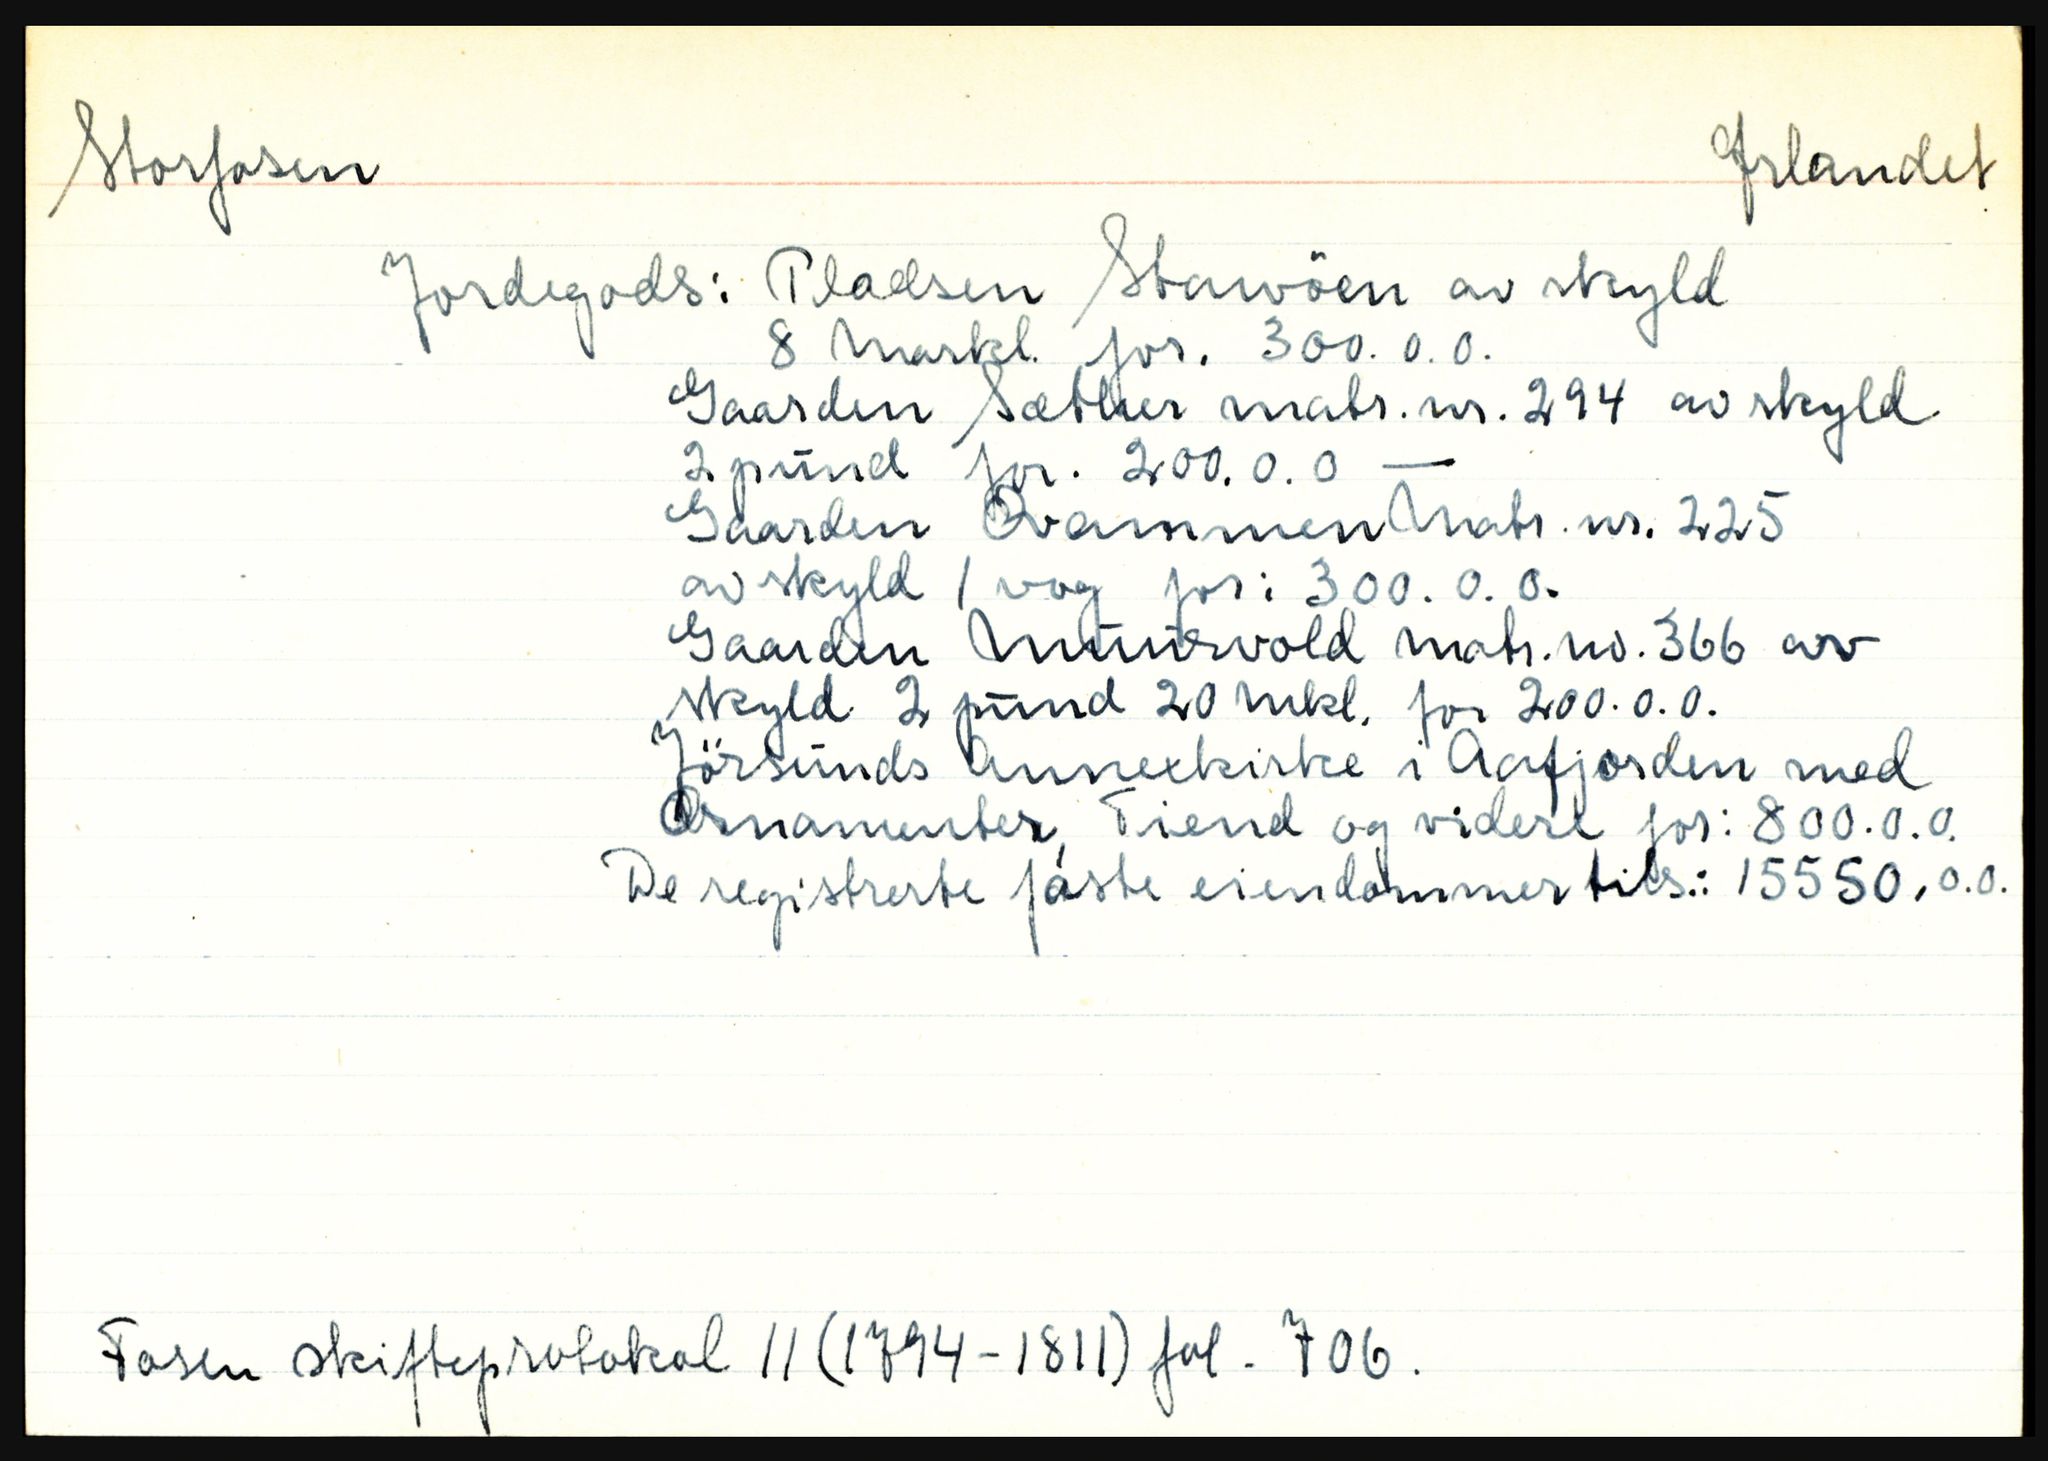 Storfosen Ørlandet
Jordegods: Pladsen Stawöen av skyld
8 Markl. for. 300. 0. 0.
Gaarden Sæther matr. nr. 294 av skyld
2 pund for. 200. 0. 0 —
Gaarden Qvammen Matr. nr. 225
av skyld 1 vog for: 300. 0. 0.
Gaarden Muursvold matr. no. 366 av
skyld 2 pund 20 Mkl. for 200. 0. 0.
Jörsunds Annexkirke i Aafjorden med
Ornamenter, Tiend og videre for: 800. 0. 0.
De registrerte faste eiendommer tils.: 15550, 0. 0.
Fosen skifteprotokol 11 (1794-1811) fol. 706.